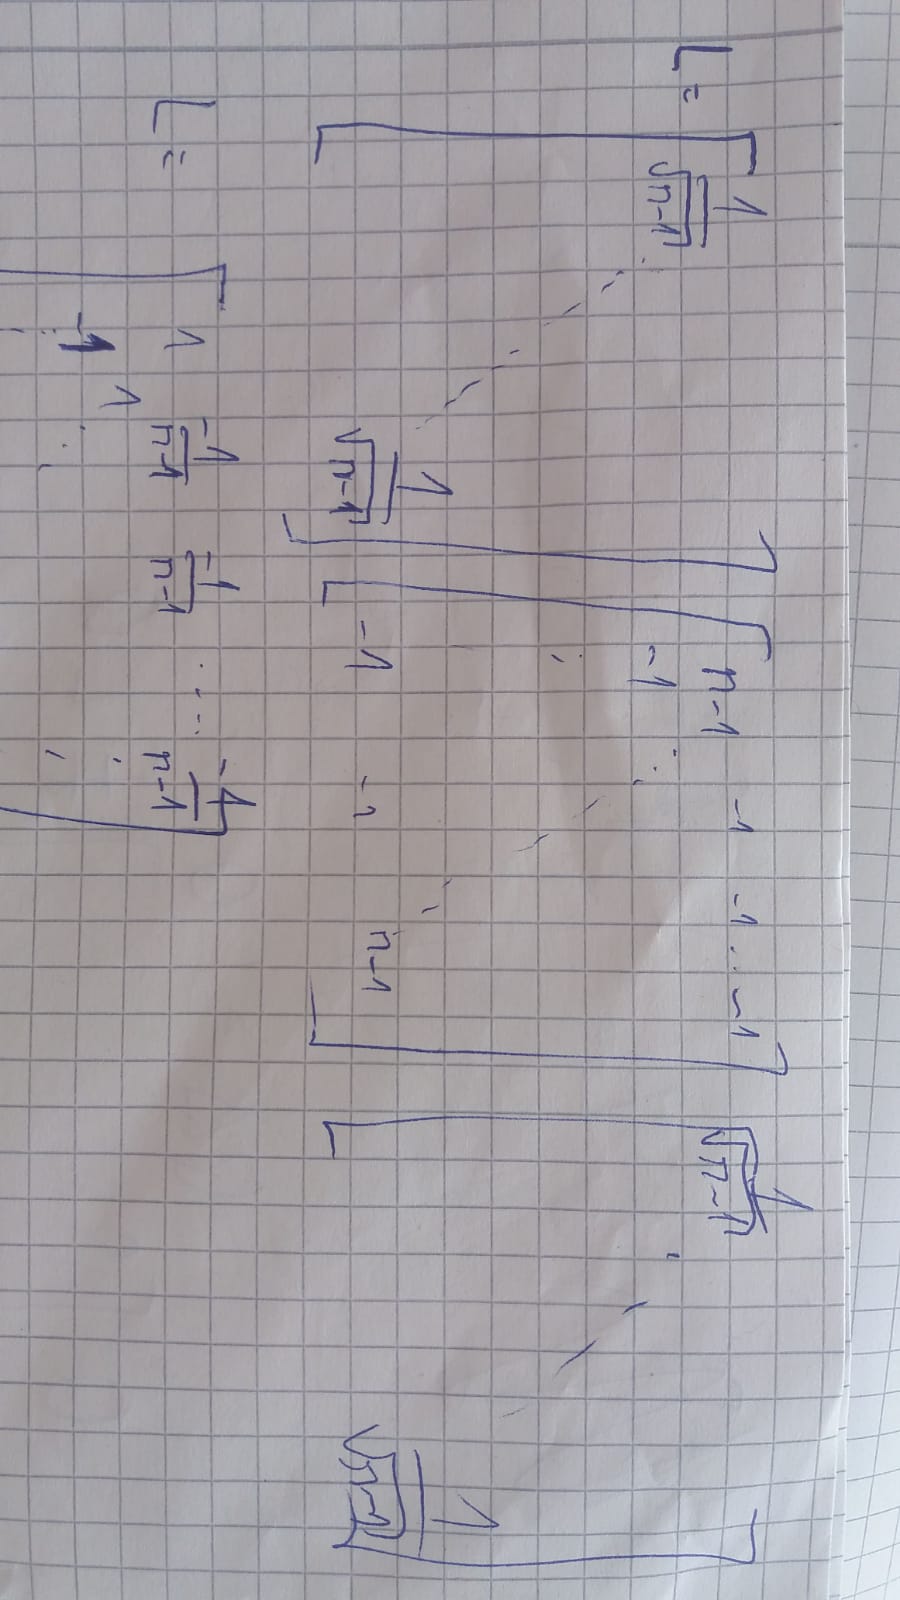 L = [ 1/√(n-1) ⋱ 1/√(n-1) ] [ n-1 -1 -1 .. -1 ; -1 ⋱ ; ⋮ ⋱ ; -1 -1 n-1 ] [ 1/√(n-1) ⋱ 1/√(n-1) ]
L = [ 1 -1/(n-1) -1/(n-1) ..... -1/(n-1) ; -1 1 ⋱ ⋮